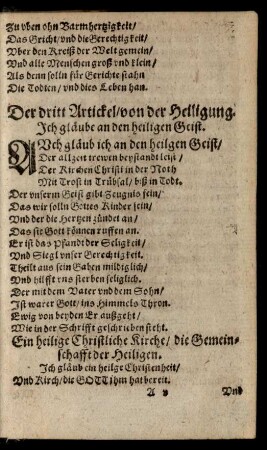 Zu vben ohn Barmhertzigkeit/
Das Gricht/ vnd die Gerechtigkeit/
Vber den Kreiß der Welt gemein/
Vnd alle Menschen groß vnd klein/
Als denn solln für Gerichte stahn
Die Todten/ vnd dies Leben han.
Der dritt Artickel/ von der Heiligung.
Jch gläube an den heiligen Geist.
AVch gläub ich an den heilgen Geist/
Der allzeit trewen beystandt leist/
Der Kirchen Christi in der Noth
Mit Trost in Trübsal/ biß in Todt.
Der vnserm Geist gibt Zeugnis fein/
Das wir solln Gottes Kinder sein/
Vnd der die Hertzen zündet an/
Das sie Gott können ruffen an.
Er ist das Pfandt der Seligkeit/
Vnd Siegl vnser Gerechtigkeit.
Theilt aus sein Gaben mildiglich/
Vnd hilfft vns sterben seliglich.
Der mit dem Vater vnd dem Sohn/
Jst warer Gott/ ins Himmels Thron.
Ewig von beyden Er außgeht/
Wie in der Schrifft geschrieben steht.
Ein heilige Christliche Kirche/ die Gemein-
schafft der Heiligen.
Jch gläub ein heilge Christenheit/
Vnd Kirch/ die GOTT jhm hat bereit.
Vnd